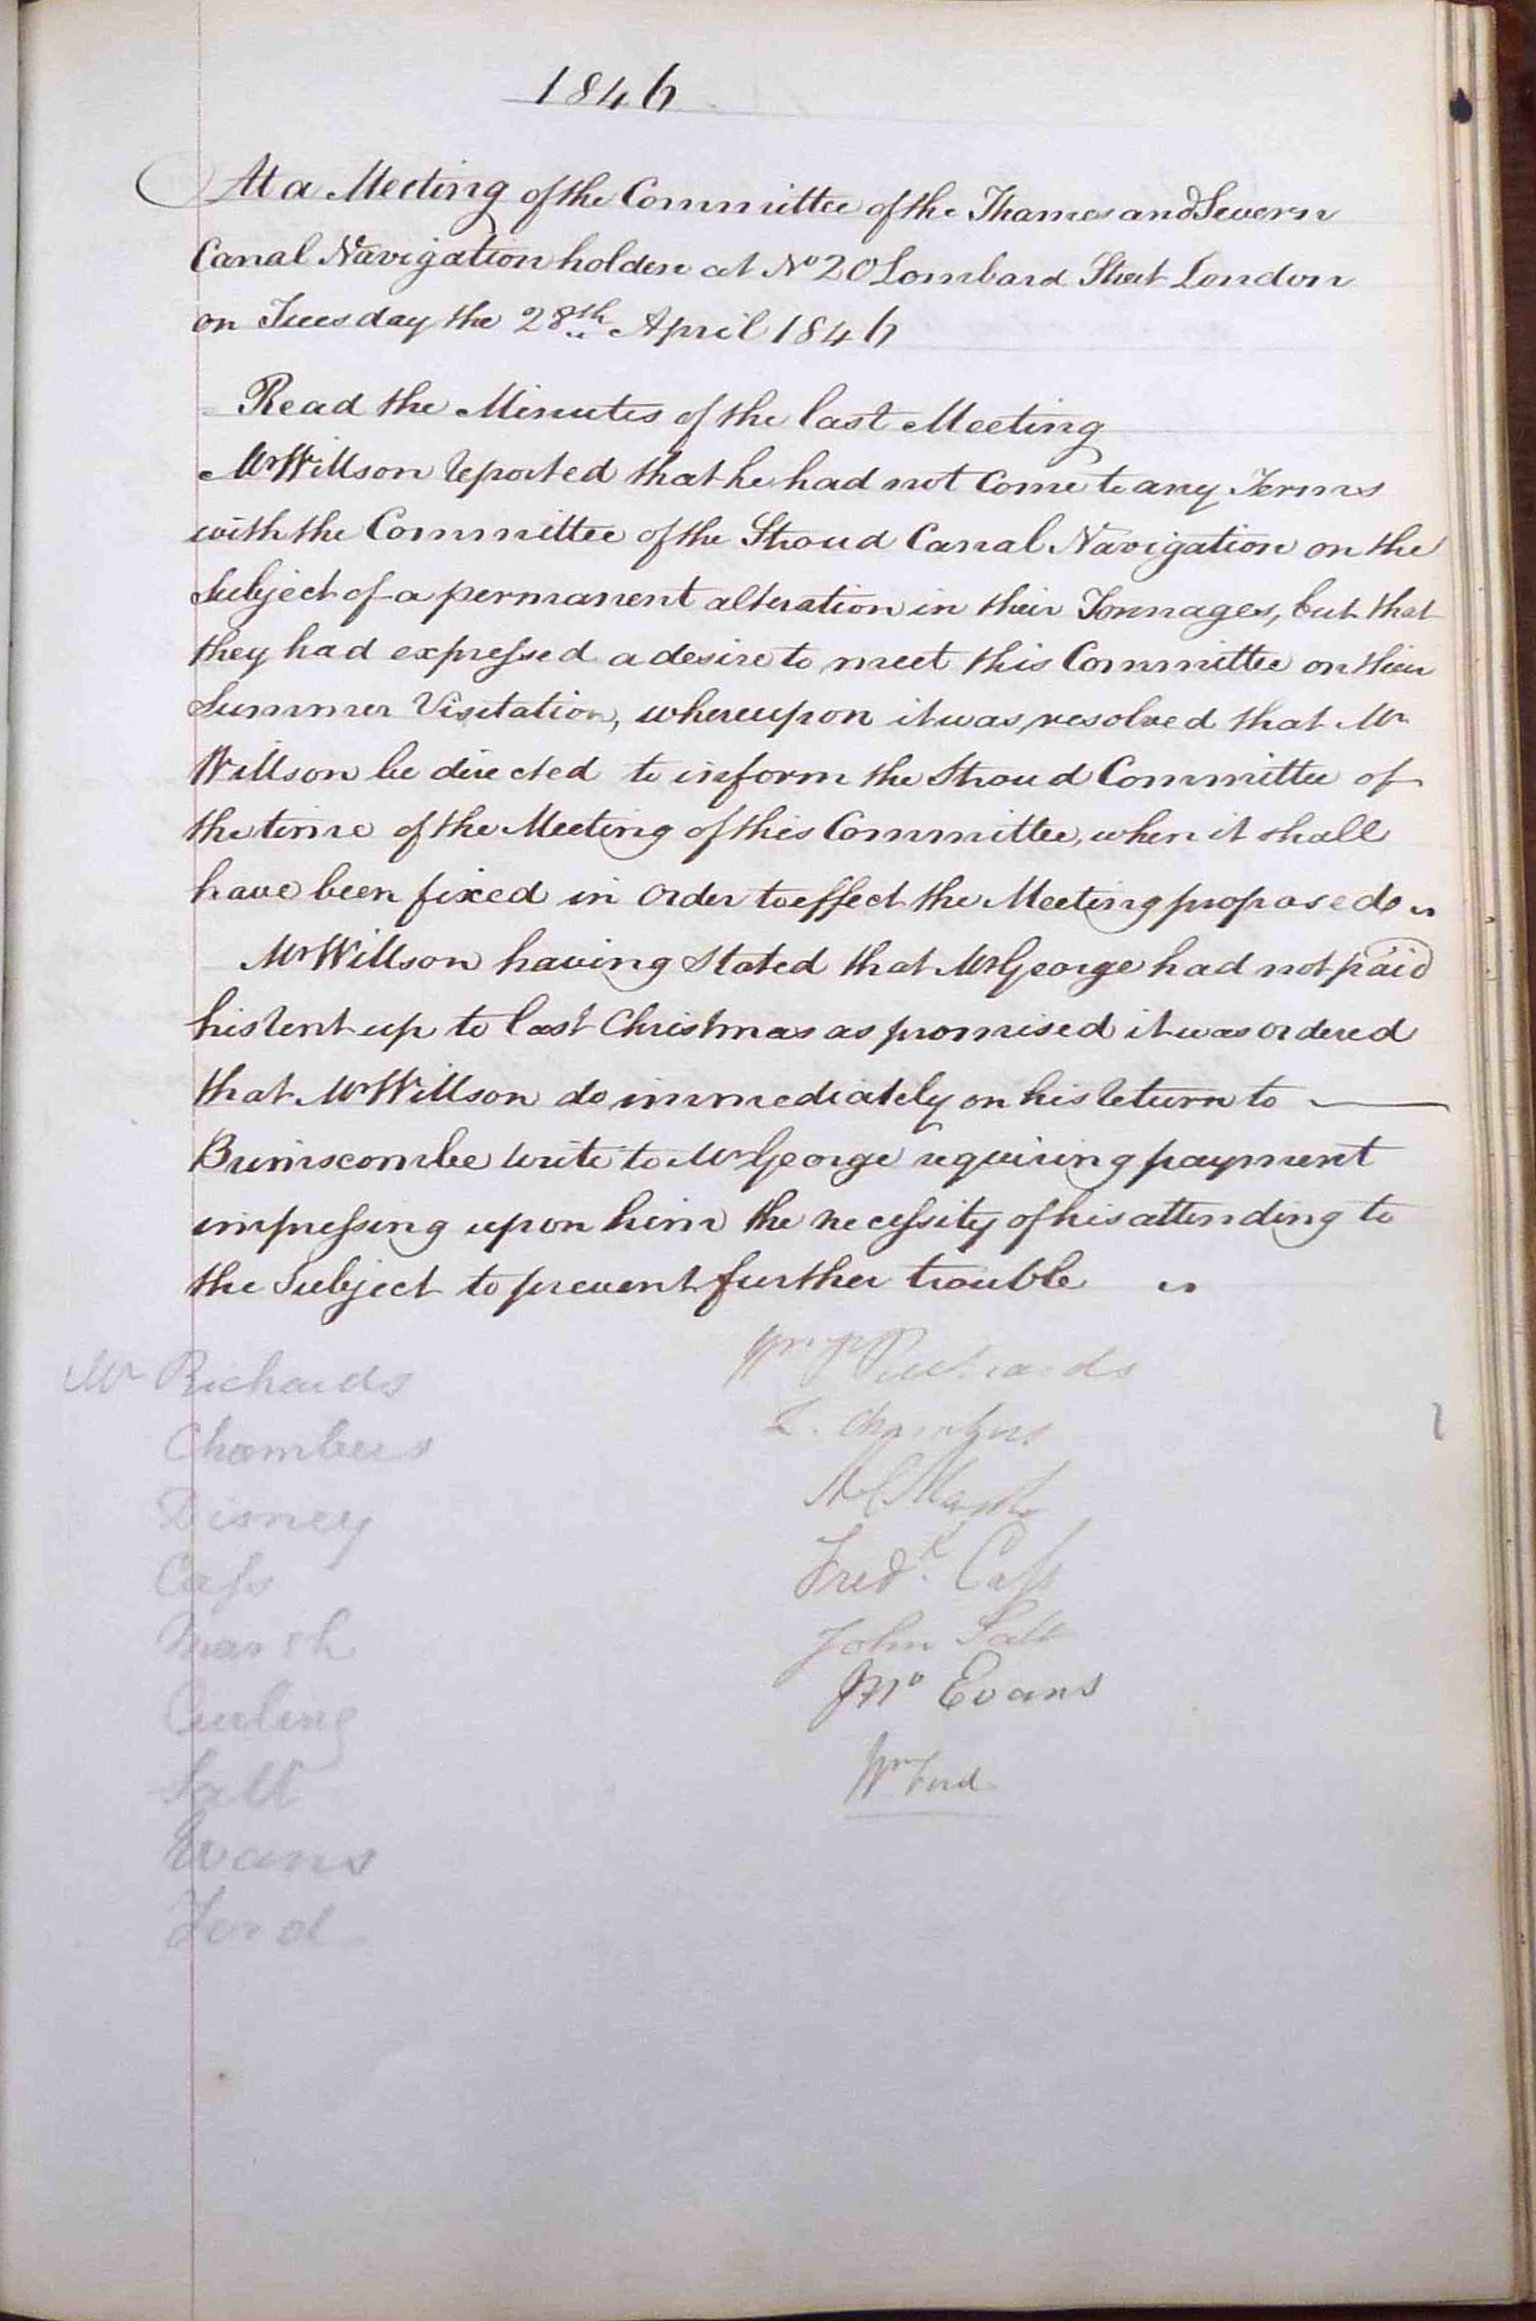 1846
At a Meeting of the Committee of the Thames and Severn
Canal Navigation holden at No 20 Lombard Street London
on Tuesday the 28th April 1846
Read the Minutes of the last Meeting
Mr Willson reported that he had not Come to any Terms
with the Committee of the Stroud Canal Navigation on the
Subject of a permanent alteration in their Tonnages, but that
they had expressed a desire to meet this Committee on their
Summer Visitation, whereupon it was resolved that Mr
Willson be directed to inform the Stroud Committee of
the time of the Meeting of this Committee, when it shall
have been fixed in Order to effect the Meeting proposed
Mr Willson having Stated that Mr George had not paid
his rent up to last Christmas as promised it was ordered
that Mr Willson do immediately on his return to
Brimscombe write to Mr George requiring payment
impressing upon him the necessity of his attending to
the Subject to prevent further trouble
Mr Richards
Chambers
Disney
Cass
Marsh
Curling
Salt
Evans
Ford
Wm Richards
Chambers
Marsh
Fredk. Cass
John Salt
Jno Evans
Wm Ford